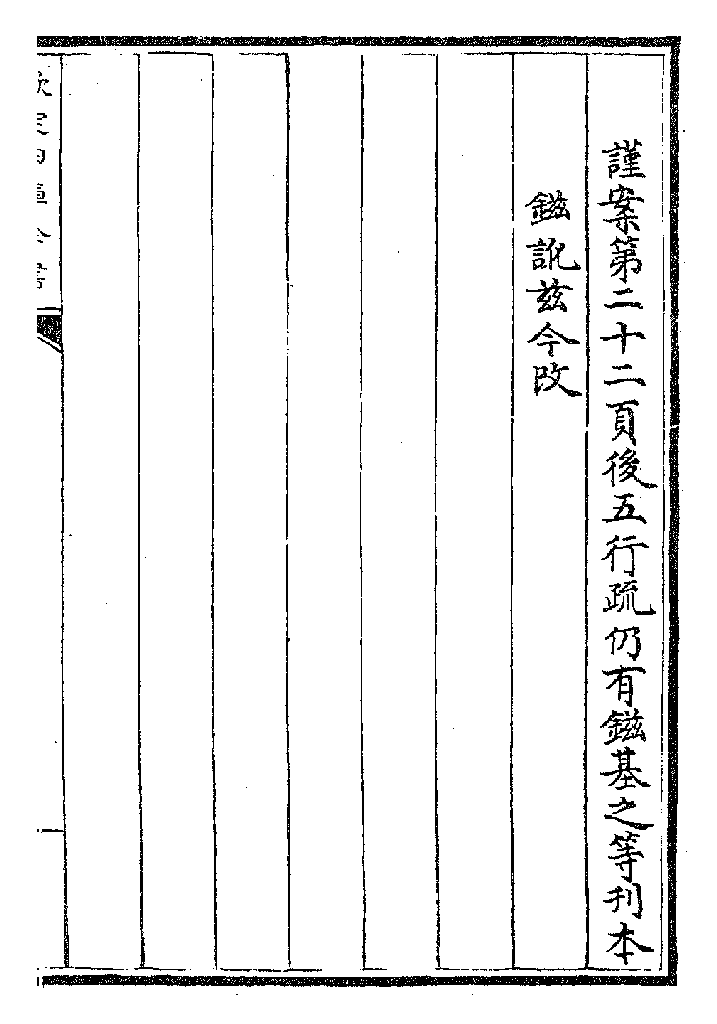 謹案第二十二頁後五行疏仍有鎡基之等刊本
鎡訛兹今改
欽定四庫全書